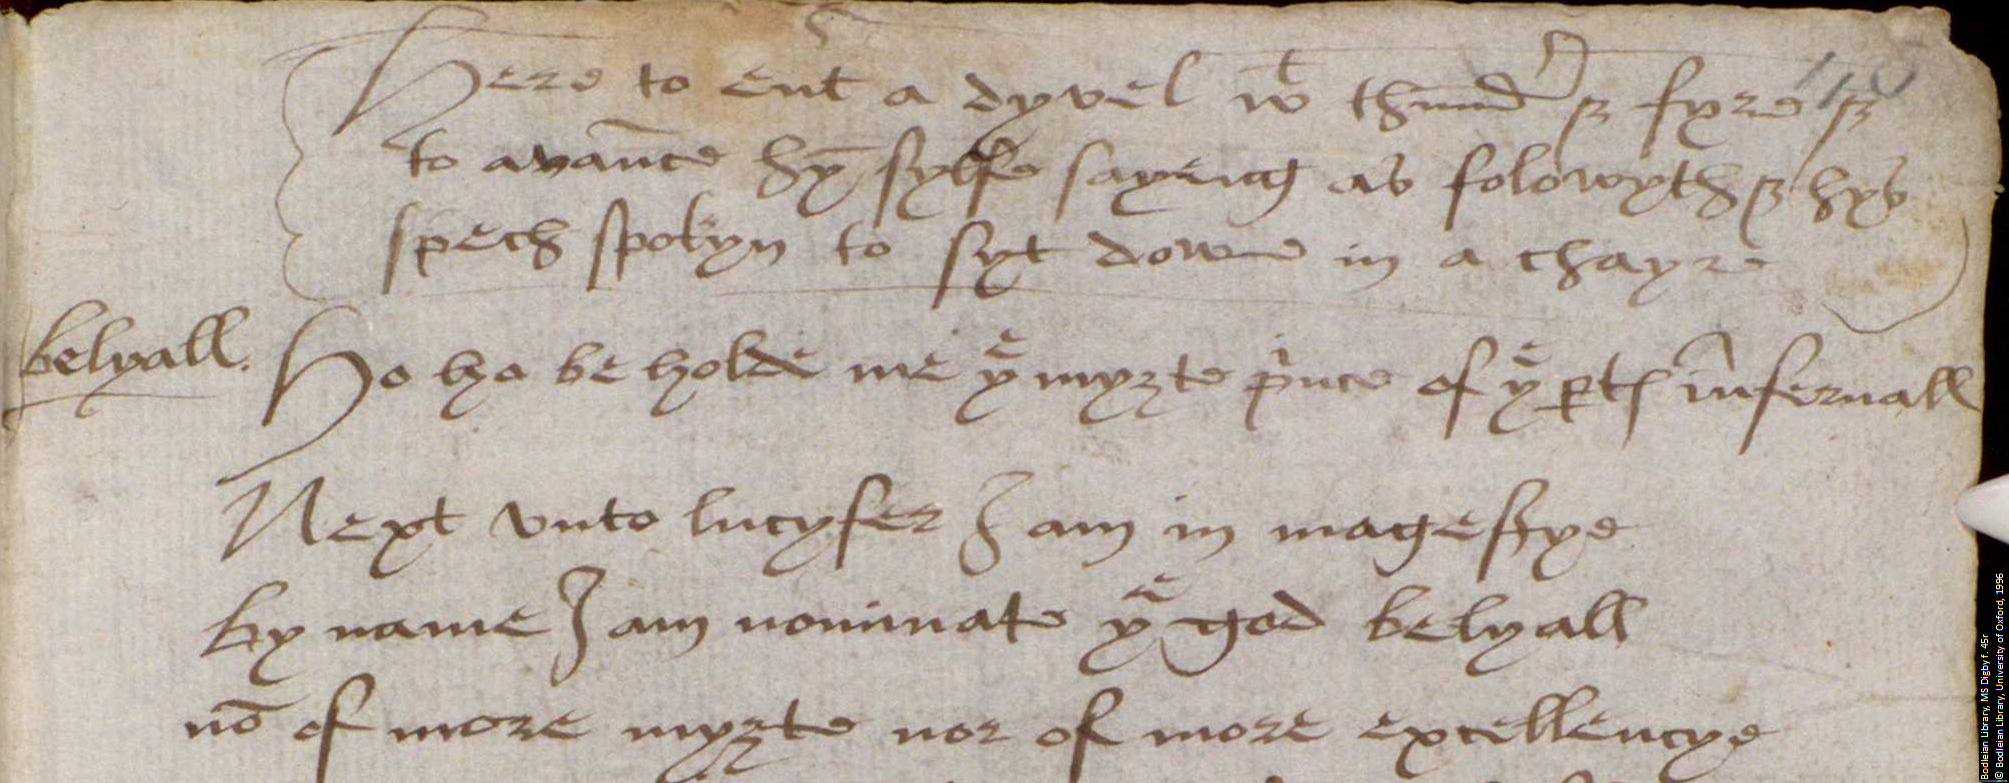 Here to ent̄ a dyvel wᵗ thund̄ & fyre &
to avau̅ce hy̅ sylfe sayeng as folowyth & hys
spech spokyn to syt downe in a chayre
belyall. Ho ho be holde me yᵉ myȝte pʳnce of yᵉ ꝑtꝭ infernall
Next vnto lucyfer I am in magestye
By name I am nominate yᵉ god belyall
no̅ of more myȝte nor of more excellencye
Bodleian Library, MS Digby f. 45r
© Bodleian Library, University of Oxford, 1996